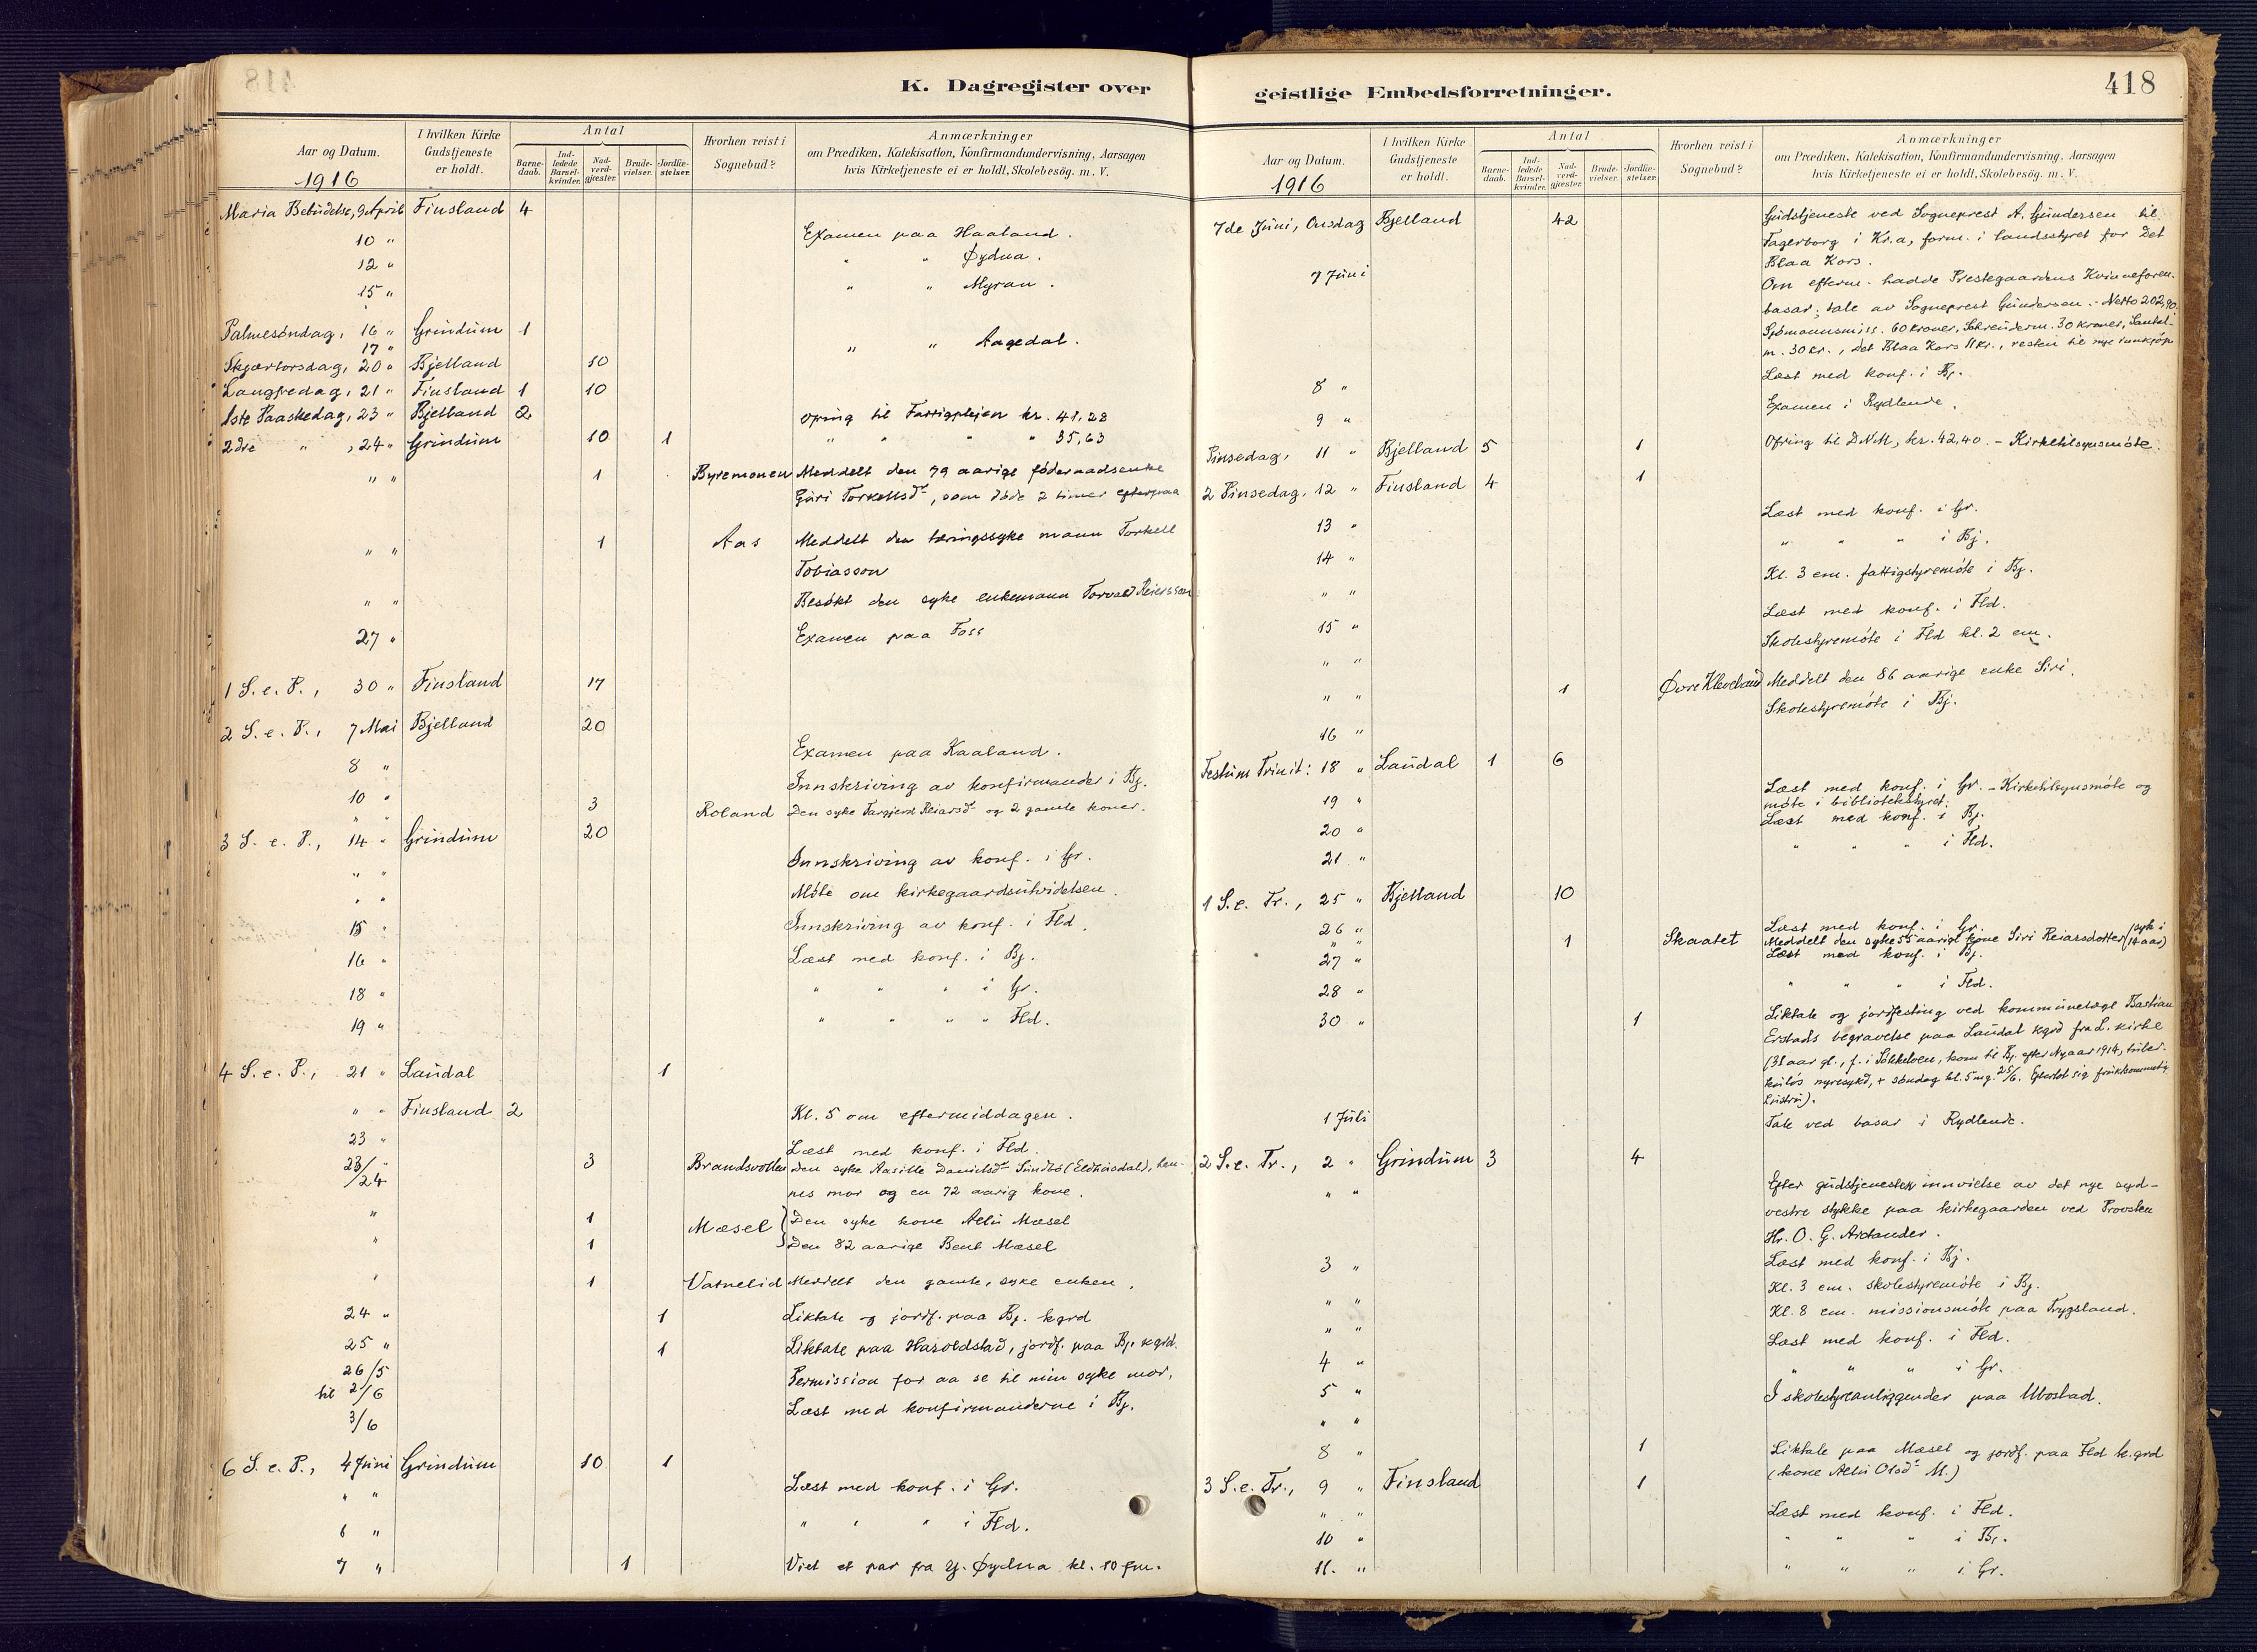 K. Dagregister over
Aar og Datum.
1916
I hvilken Kirke Gudstjeneste er holdt.
Antal
Barnedaab.
Indledede Barselkvinder.
Nadverdgjæster.
Brudevielser.
Jordfæstelser.
Hvorhen reist i Sognebud?
Anmærkninger
om Prædiken, Katekisation, Konfirmandundervisning, Aarsagen
hvis Kirketjeneste ei er holdt, Skolebesög. m. V.
Maria Bebudelse, 9 April Finsland 4
10 " Examen paa Haaland.
12 " " " Øydna.
15 " " " Myran.
Palmesøndag, 16 " Grindum 1
17 " " " Aagedal.
Skjærtorsdag, 20 " Bjelland 10
Langfredag, 21 " Finsland 1 10
1ste Paaskedag, 23 " Bjelland 2 Ofring til Fattigplejen kr. 41,28
2dre " , 24 " Grindum 10 1 " " " " 35,63
" " 1 Byremonen Meddelt den 79 aarige føderaadsenke
Guri Torkellsdr, som døde 2 timer efterpaa
" " 1 Aas Meddelt den tæringssyke mann Torkell
Tobiasson
" " Besøkt den syke enkemann Torvald Reiersson
27 " Examen paa Foss
1 S. e. P., 30 " Finsland 17
2 S. e. P., 7 Mai Bjelland 20
8 " Examen paa Kaaland.
10 " Innskriving av konfirmander i Bj.
" " 3 Roland Den syke Targjerd Reiarsdr og 2 gamle koner.
3 S. e. P., 14 " Grindum 20
" " Innskriving av konf. i Gr.
" " Møte om kirkegaardsutvidelsen.
15 " Innskriving av konf. i Fld.
16 " Læst med konf. i Bj.
18 " " " " i Gr.
19 " " " " " Fld.
4 S. e. P., 21 " Laudal 1
" " Finsland 2 Kl. 5 om eftermiddagen.
23 " Læst med konf. i Fld.
23/24 " 3 Brandsvollen Den syke Aasille Danielsdr Sundbø (Eldhusdal), hennes
mor og en 72 aarig kone.
" 1 Mæsel Den syke kone Aelu Mæsel
" 1 Den 82 aarige Bent Mæsel
" 1 Vatnelid Meddelt den gamle, syke enken.
24 " 1 Liktale og jordf. paa Bj. kgrd
25 " 1 Liktale paa Haroldstad, jordf. paa Bj. kgrd.
26/5 til 2/6 Permission for aa se til min syke mor.
3/6 Læst med konfirmanderne i Bj.
6 S. e. P., 4 Juni Grindum 10 1
" " Læst med konf. i Gr.
6 " " " " i Fld.
7 " 1 Viet et par fra Y. Øydna kl. 10 fm.
geistlige Embedsforretninger.
418
Aar og Datum.
1916
I hvilken Kirke Gudstjeneste er holdt.
Antal
Barnedaab.
Indledede Barselkvinder.
Nadverdgjæster.
Brudevielser.
Jordfæstelser.
Hvorhen reist i Sognebud?
Anmærkninger
om Prædiken, Katekisation, Konfirmandundervisning, Aarsagen
hvis Kirketjeneste ei er holdt, Skolebesög. m. V.
7de Juni, Onsdag Bjelland 42 Gudstjeneste ved Sogneprest A. Gundersen til
Fagerborg i Kr.a, form. i landsstyret for Det
Blaa Kors.
7 Juni Om efterm. hadde Prestegaardens Kvinneforen.
basar; tale av Sogneprest Gundersen. - Netto 202,90.
Sjømannsmiss. 60 kroner, Schreuderm. 30 kroner, Santalm.
30 kr., Det Blaa Kors 11 kr., resten til nye innkjøp
8 " Læst med konf. i Bj.
9 " Examen i Rydlende.
Pinsedag, 11 " Bjelland 5 1 Ofring til D.N.M., kr. 42,40. - Kirketilsynsmøte.
2 Pinsedag, 12 " Finsland 4 1
13 " Læst med konf. i Gr.
14 " " " " i Bj.
" " Kl. 3 em. fattigstyremøte i Bj.
15 " Læst med konf. i Fld.
" " Skolestyremøte i Fld kl. 2 em.
" " 1 Øvre Kleveland Meddelt den 86 aarige enke Siri.
16 " Skolestyremøte i Bj.
Festum Trinit: 18 " Laudal 1 6
19 " Læst med konf. i Gr. - Kirketilsynsmøte og
møte i bibliotekstyret.
20 " Læst med konf. i Bj.
21 " " " " i Fld.
1 S. e. Tr., 25 " Bjelland 10
26 " Læst med konf. i Gr.
" " 1 Skaatet Meddelt den syke 55 aarige kone Siri Reiarsdotter (syk i 14 aar)
27 " Læst med konf. i Bj.
28 " " " " i Fld.
30 " 1 Liktale og jordfesting ved kommunelæge Bastian
Erstads begravelse paa Laudal kgrd fra L. kirke
(31 aar gl., f. i Sokkelven, kom til Bj. efter Nyaar 1914, tuberkuløs
nyresykd, + søndag kl. 5 mg. 25/6. Efterlot sig fruktsommelig
hustru).
1 Juli Tale ved basar i Rydlende.
2 S. e. Tr., 2 " Grindum 3 4
" " Efter gudstjenesten innvielse av det nye sydvestre
stykke paa kirkegaarden ved Provsten
Hr. O. G. Arctander.
3 " Læst med konf. i Bj.
" " Kl. 3 em. skolestyremøte i Bj.
" " Kl. 8 em. missionsmøte paa Trygsland.
4 " Læst med konf. i Fld.
5 " " " " i Gr.
" " I skolestyreanliggender paa Ubostad.
8 " 1 Liktale paa Mæsel og jordf. paa Fld k.grd
(kone Aelu Olsdr M.)
3 S. e. Tr., 9 " Finsland 1
" " Læst med konf. i Fld.
10 " " " " i Bj.
11. " " " " i Gr.